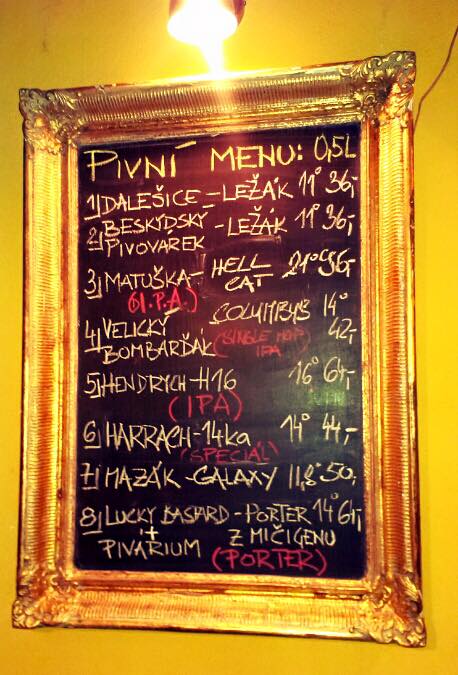 PIVNÍ MENU: 0,5L
1) DALEŠICE - LEŽÁK 11° 36,-
2) BESKYDSKÝ PIVOVAREK - LEŽÁK 11° 36,-
3) MATUŠKA - HELL CAT 21° 96,-
(6I.P.A.)
4) VELICKÝ BOMBARĎÁK COLUMBUS 14° 42,-
(SINGLE HOP IPA)
5) HENDRYCH - H16 16° 64,-
(IPA)
6) HARRACH - 14ka 14° 44,-
(SPECIÁL)
7) MAZÁK - GALAXY 11,8° 50,-
8) LUCKY BASTARD - PORTER 14° 64,-
+ PIVARIUM Z MIČIGENU
(PORTER)